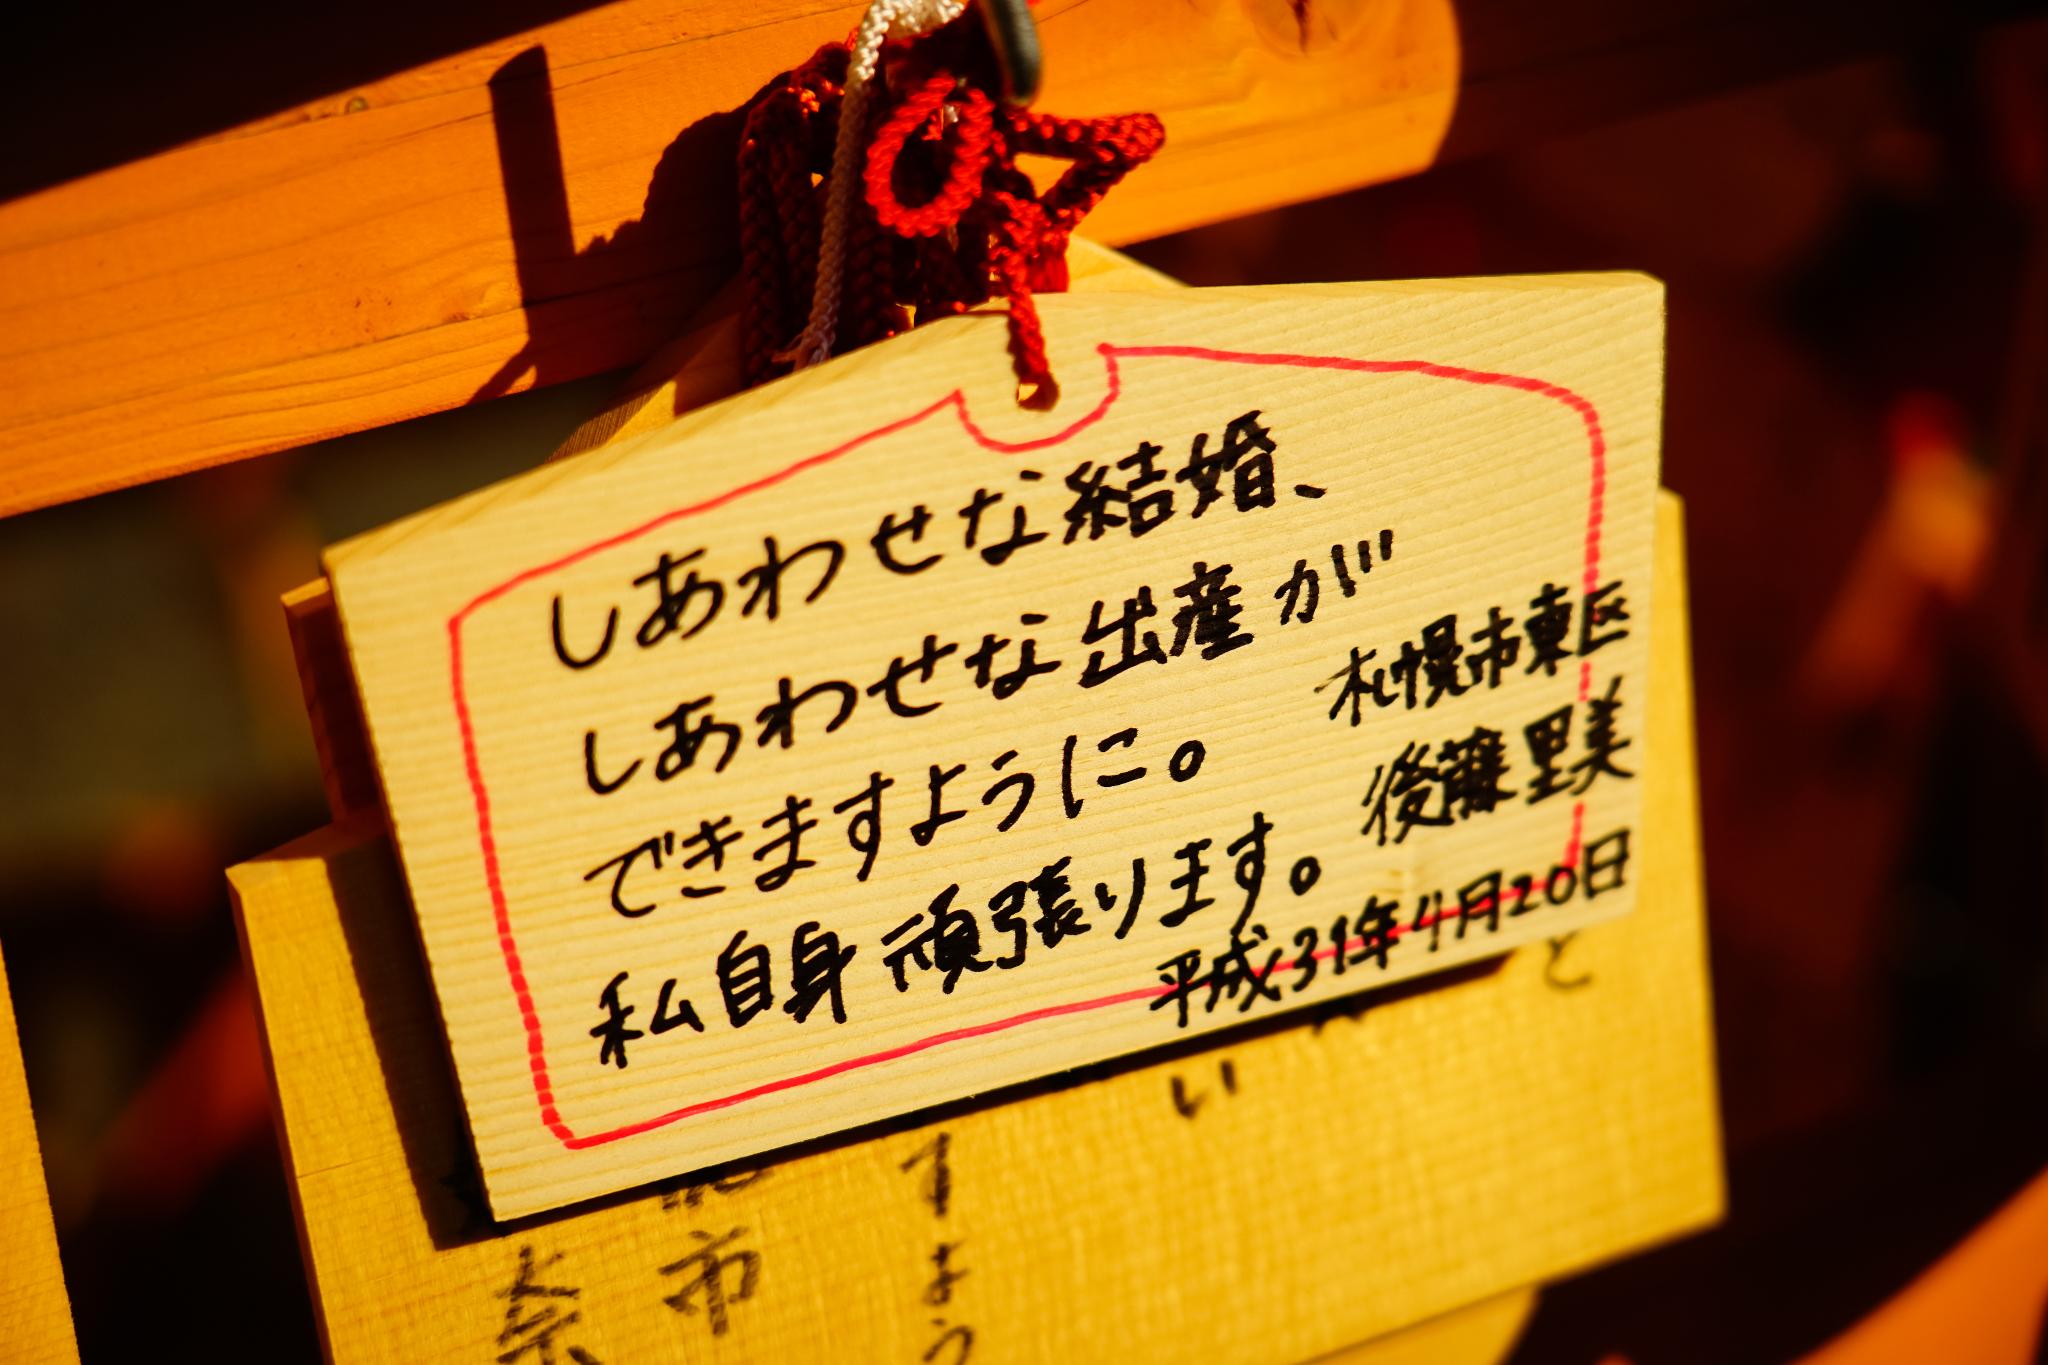 しあわせな結婚、
しあわせな出産が
できますように。
私自身頑張ります。
札幌市東区
後藤里美
平成31年4月20日
と
い
市
ますよう
奈